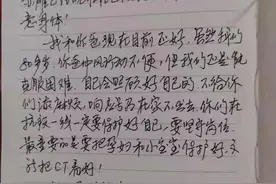 意身体！
我和你爸现在目前还好，虽然我们
80多岁，你爸中风行动不便，但我们还是能
克服困难，自己会照顾好自己的，不给你
们添麻烦，响应号召在家不出去，你们在
抗疫一线一定要保护好自己，要坚守岗位。
最重要的是要把孕妇和小宝宝保护好。
把CT看好！